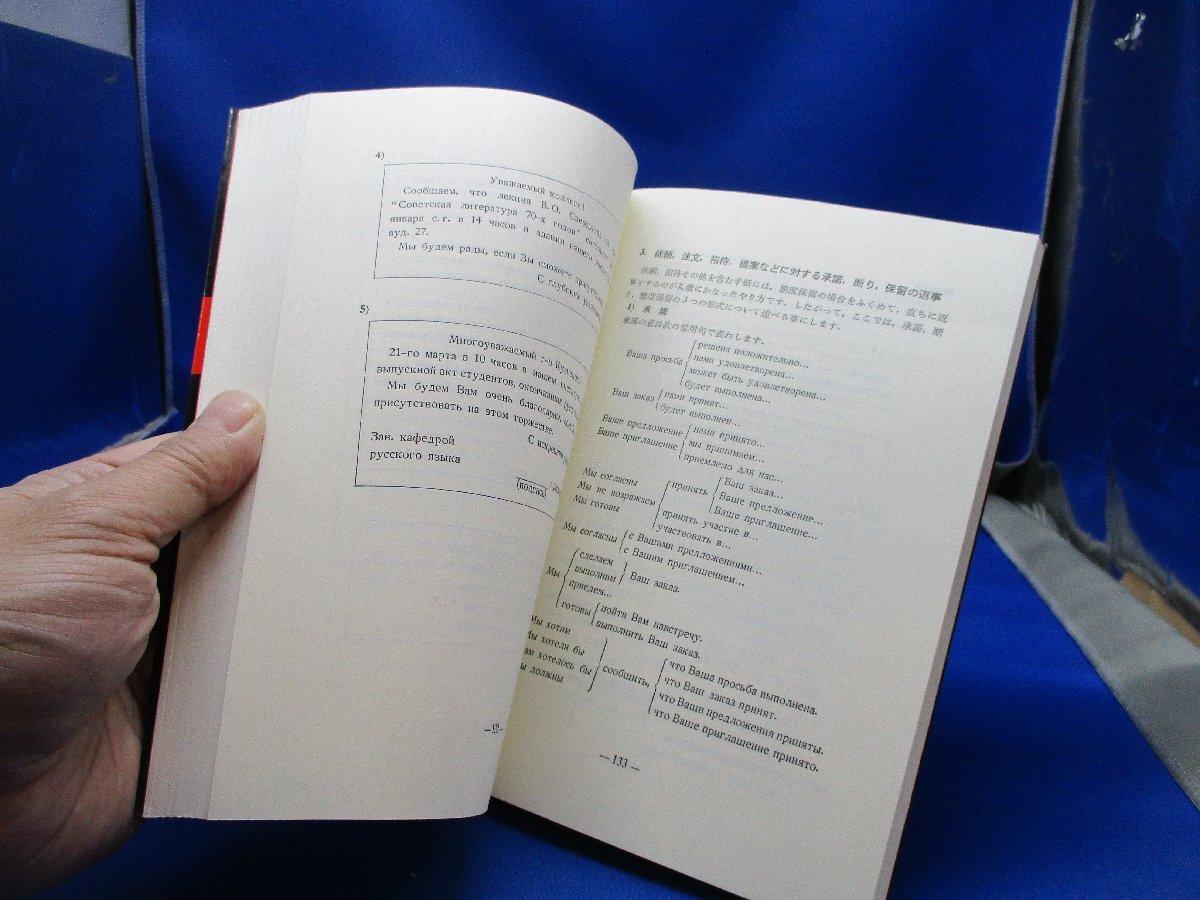 4)
Уважаемый коллега!
Сообщаем, что лекция В. О.
"Советская литература 70-х годов"
января с. г. в 14 часов в здании нашего
ауд. 27.
Мы будем рады, если Вы сможете
С глубоким
5)
Многоуважаемый г-н
21-го марта в 10 часов в нашем
выпускной акт студентов, окончивших
Мы будем Вам очень благодарны,
присутствовать на этом торжестве.
Зав. кафедрой
русского языка
С
(подпись)
3. 依頼,注文,招待,提案などに対する承諾,断り,保留の返事
依頼,招待その他を含む手紙には,態度保留の場合をふくめて,直ちに返
事をするのが礼儀にかなったやり方です。したがって,ここでは,承諾,断
り,態度保留の3つの形式について述べる事にします。
1) 承 諾
承諾の意は次の常用句で表わします。
Ваша просьба
решена положительно...
нами удовлетворена...
может быть удовлетворена...
будет выполнена...
Ваш заказ
нами принят...
будет выполнен...
Ваше предложение
Ваше приглашение
нами принято...
мы принимаем...
приемлемо для нас...
Мы согласны
Мы не возражаем
Мы готовы
принять
Ваш заказ...
Ваше предложение...
Ваше приглашение...
принять участие в...
участвовать в...
Мы согласны
с Вашими предложениями...
с Вашим приглашением...
Мы
сделаем
выполним
Ваш заказ.
приедем...
готовы
пойти Вам навстречу.
выполнить Ваш заказ.
Мы хотим
Мы хотели бы
хотелось бы
должны
сообщить,
что Ваша просьба выполнена.
что Ваш заказ принят.
что Ваши предложения приняты.
что Ваше приглашение принято.
— 133 —